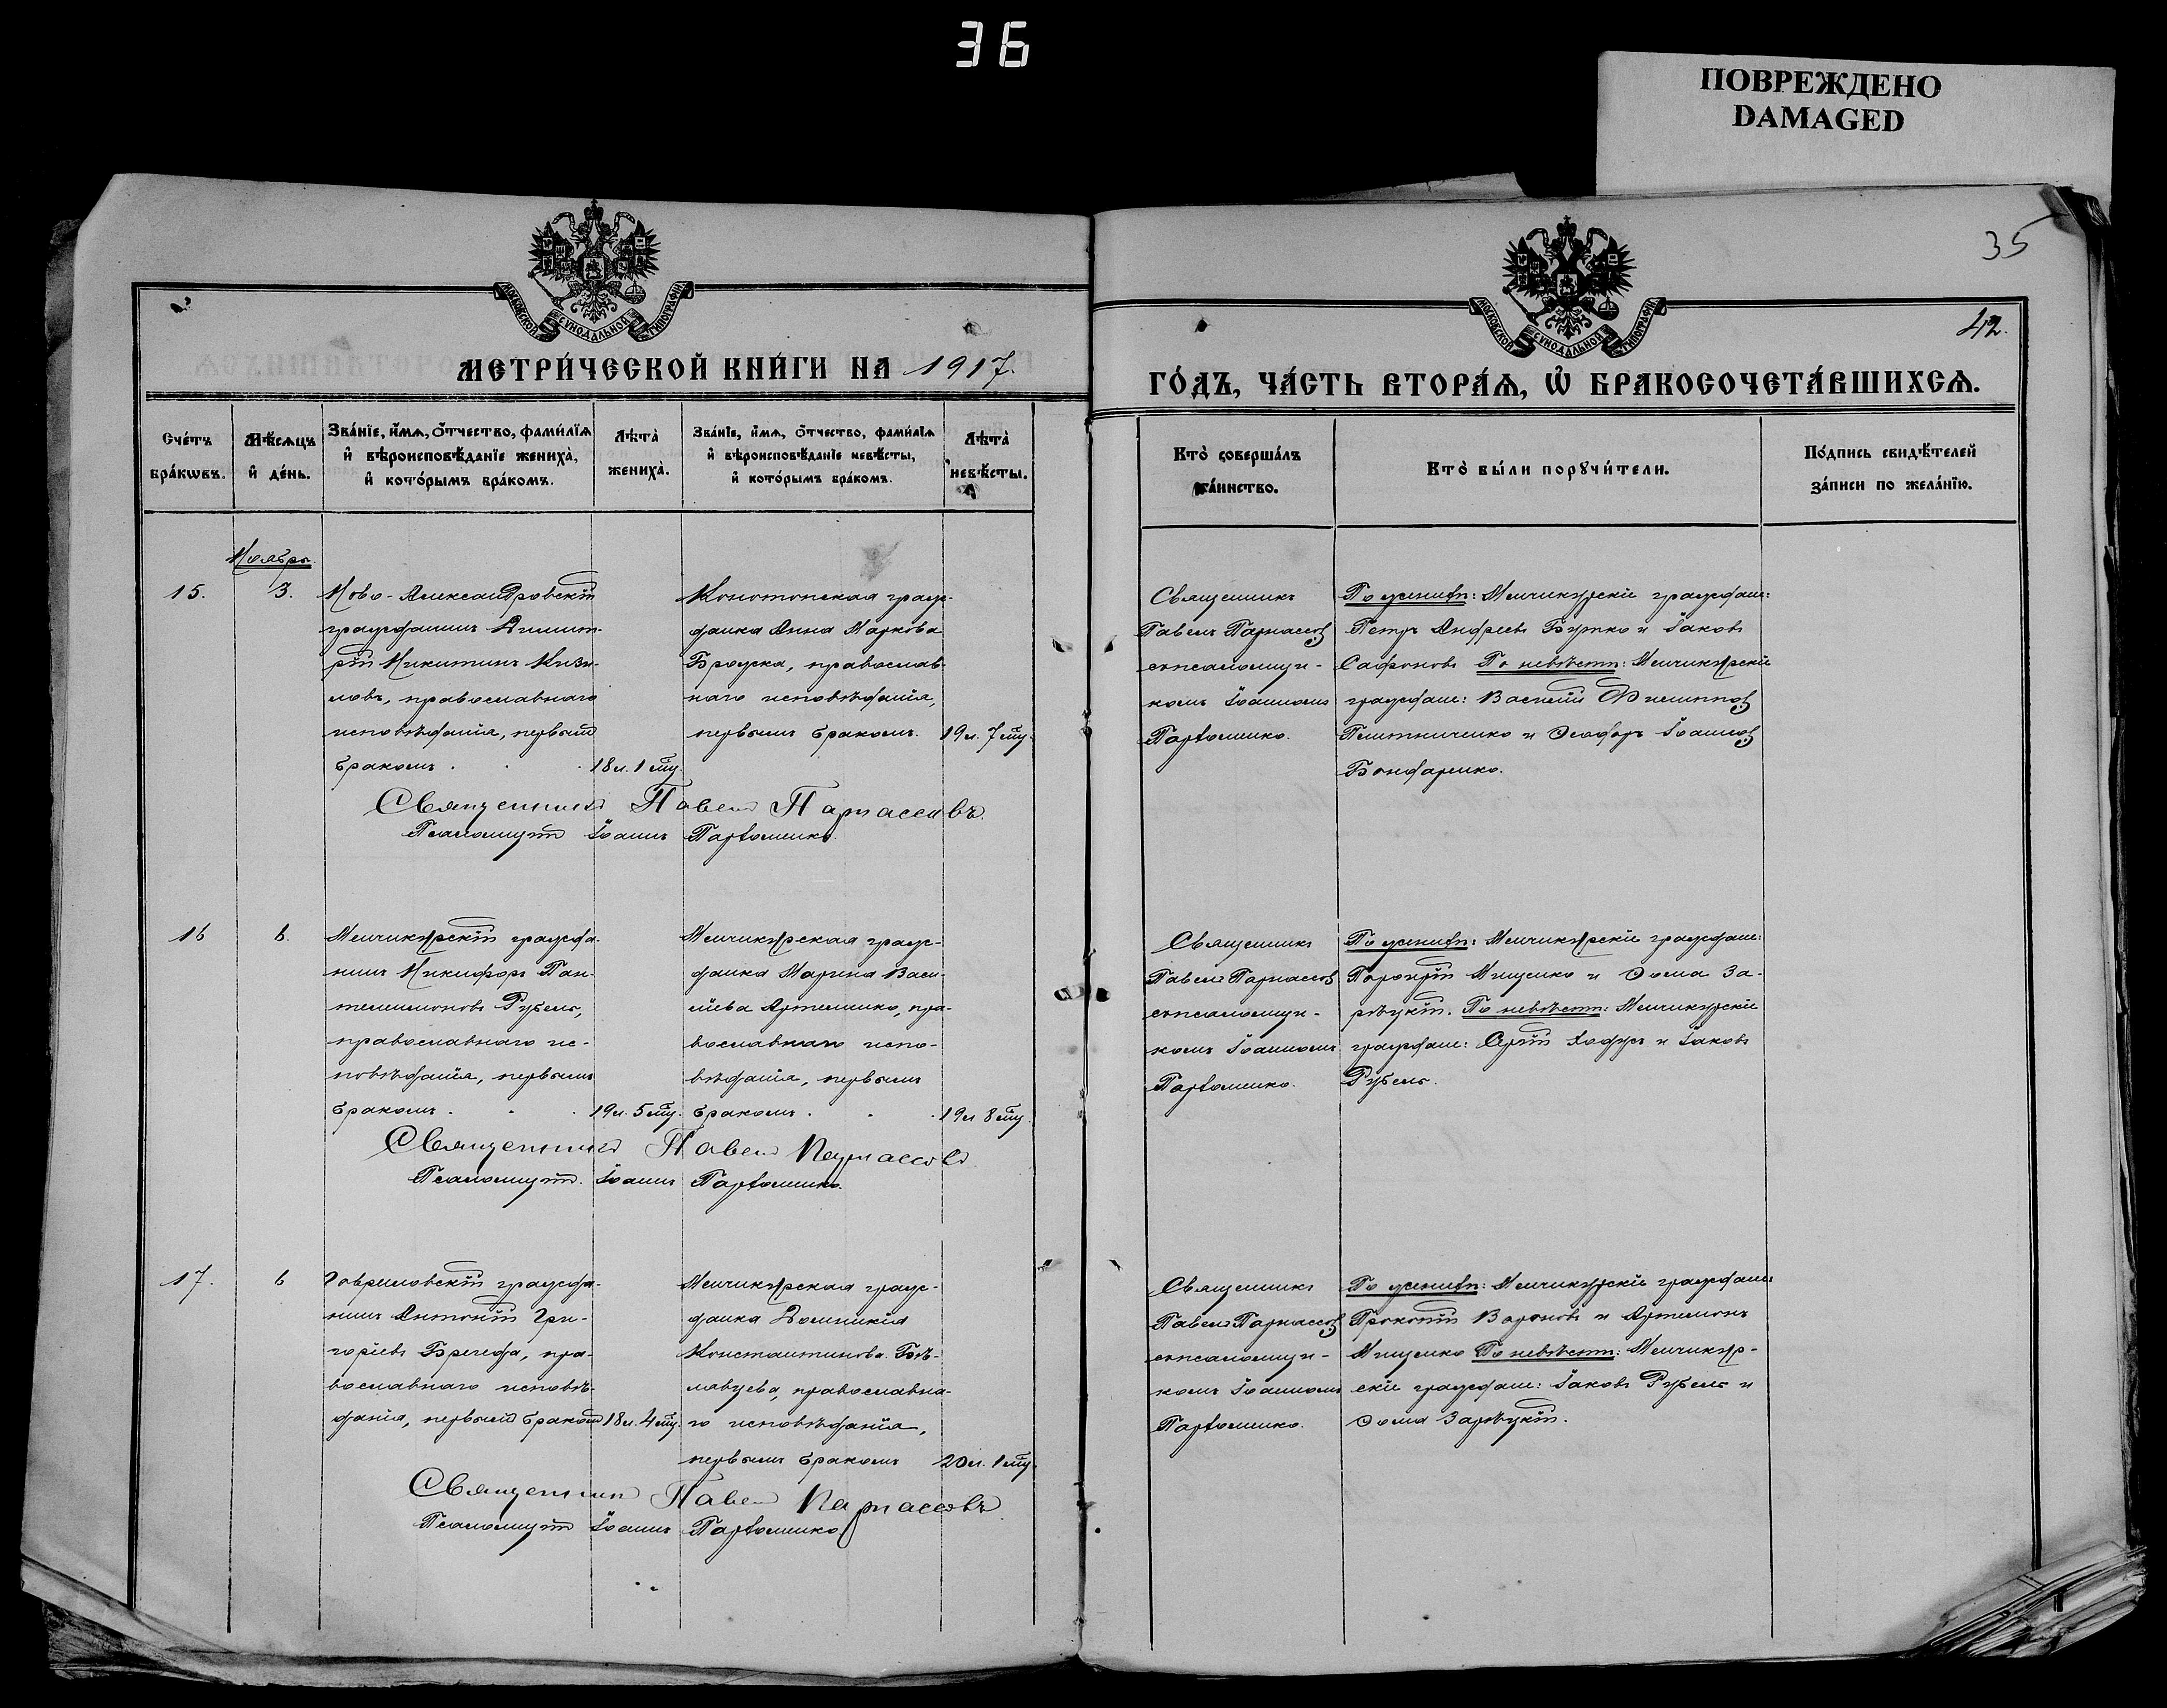 36
ПОВРЕЖДЕНО
DAMAGED
35
42.
МОСКОВСКОЙ СѴНОДАЛЬНОЙ ТИПОГРАФІИ
МОСКОВСКОЙ СѴНОДАЛЬНОЙ ТИПОГРАФІИ
МЕТРИ́ЧЕСКОЙ КНИ́ГИ НА 1917.
ГО́ДЪ, ЧА́СТЬ ВТОРА́Ѧ, Ѡ҆ БРАКОСОЧЕТА́ВШИХСѦ.
Сче́тъ бра́кѡвъ.
Мѣ́сяцъ и҆ де́нь.
Зва́нїе, и҆́мѧ, ѻ҆́тчество, фами́лїѧ и҆ вѣроисповѣ́данїе жениха̀, и҆ кото́рымъ бра́комъ.
Лѣта̀ жениха̀.
Зва́нїе, и҆́мѧ, ѻ҆́тчество, фами́лїѧ и҆ вѣроисповѣ́данїе невѣ́сты, и҆ кото́рымъ бра́комъ.
Лѣта̀ невѣ́сты.
Кто̀ соверша́лъ та́инство.
Кто̀ бы́ли порꙋчи́тели.
По́дпись свидѣ́телей за́писи по жела́нїю.
Ноябрь.
15.
3.
Ново-Александровскій
гражданинъ Димит-
рій Никитинъ Кизи-
ловъ, православнаго
исповѣданія, первымъ
бракомъ . . .
18 л. 1 мц.
Конотопская граж-
данка Анна Маркова
Бродска, православ-
наго исповѣданія,
первымъ бракомъ.
19 л. 7 мц.
Священникъ
Павелъ Парнассовъ
съ псаломщи-
комъ Іоанномъ
Пархоменко.
По женихѣ: Менчикурскіе граждане:
Петръ Андреевъ Бутко и Іаковъ
Сафоновъ По невѣстѣ: Менчикурскіе
граждане: Василій Филипповъ
Плитниченко и Ѳеодоръ Іоанновъ
Бондаренко.
Священникъ Павелъ Парнассовъ.
Псаломщикъ Іоаннъ Пархоменко.
16
6.
Менчикурскій гражда-
нинъ Никифоръ Пан-
телимоновъ Рубель,
православнаго ис-
повѣданія, первымъ
бракомъ . . .
19 л. 5 мц.
Менчикурская граж-
данка Марина Васи-
ліева Артеменко, пра-
вославнаго испо-
вѣданія, первымъ
бракомъ . . .
19 л 8 мц
Священникъ
Павелъ Парнассовъ
съ псаломщи-
комъ Іоанномъ
Пархоменко.
По женихѣ: Менчикурскіе граждане:
Порфирій Мищенко и Ѳома За-
рѣцкій. По невѣстѣ: Менчикурскіе
граждане: и Іаковъ
Рубель.
Священникъ Павелъ Парнассовъ
Псаломщикъ Іоаннъ Пархоменко.
17.
6
Гавриловскій гражда-
нинъ Антоній Гри-
горіевъ пра-
вославнаго исповѣ-
данія, первымъ бракомъ
18 л. 4 мц.
Менчикурская граж-
данка Домникія
Константинова Бѣ-
лявцева, православна-
го исповѣданія,
первымъ бракомъ
20 л. 1 мц.
Священникъ
Павелъ Парнассовъ
съ псаломщи-
комъ Іоанномъ
Пархоменко.
По женихѣ: Менчикурскіе граждане:
Прокопій Вороновъ и Артемонъ
Мищенко По невѣстѣ: Менчикур-
скіе граждане: Іаковъ Рубель и
Ѳома Зарѣцкій.
Священникъ Павелъ Парнассовъ
Псаломщикъ Іоаннъ Пархоменко